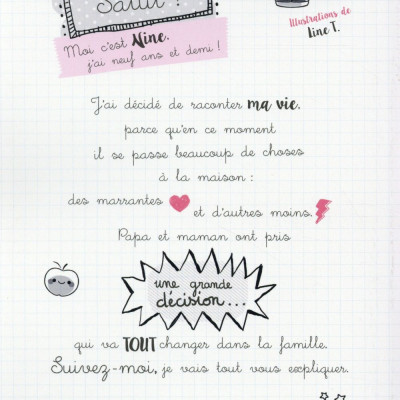 Salut !
Illustrations de
Line T.
Moi c'est Nine,
j'ai neuf ans et demi !
J'ai décidé de raconter ma vie,
parce qu'en ce moment
il se passe beaucoup de choses
à la maison :
des marrantes
et d'autres moins.
Papa et maman ont pris
une grande
décision...
qui va TOUT changer dans la famille.
Suivez-moi, je vais tout vous expliquer.